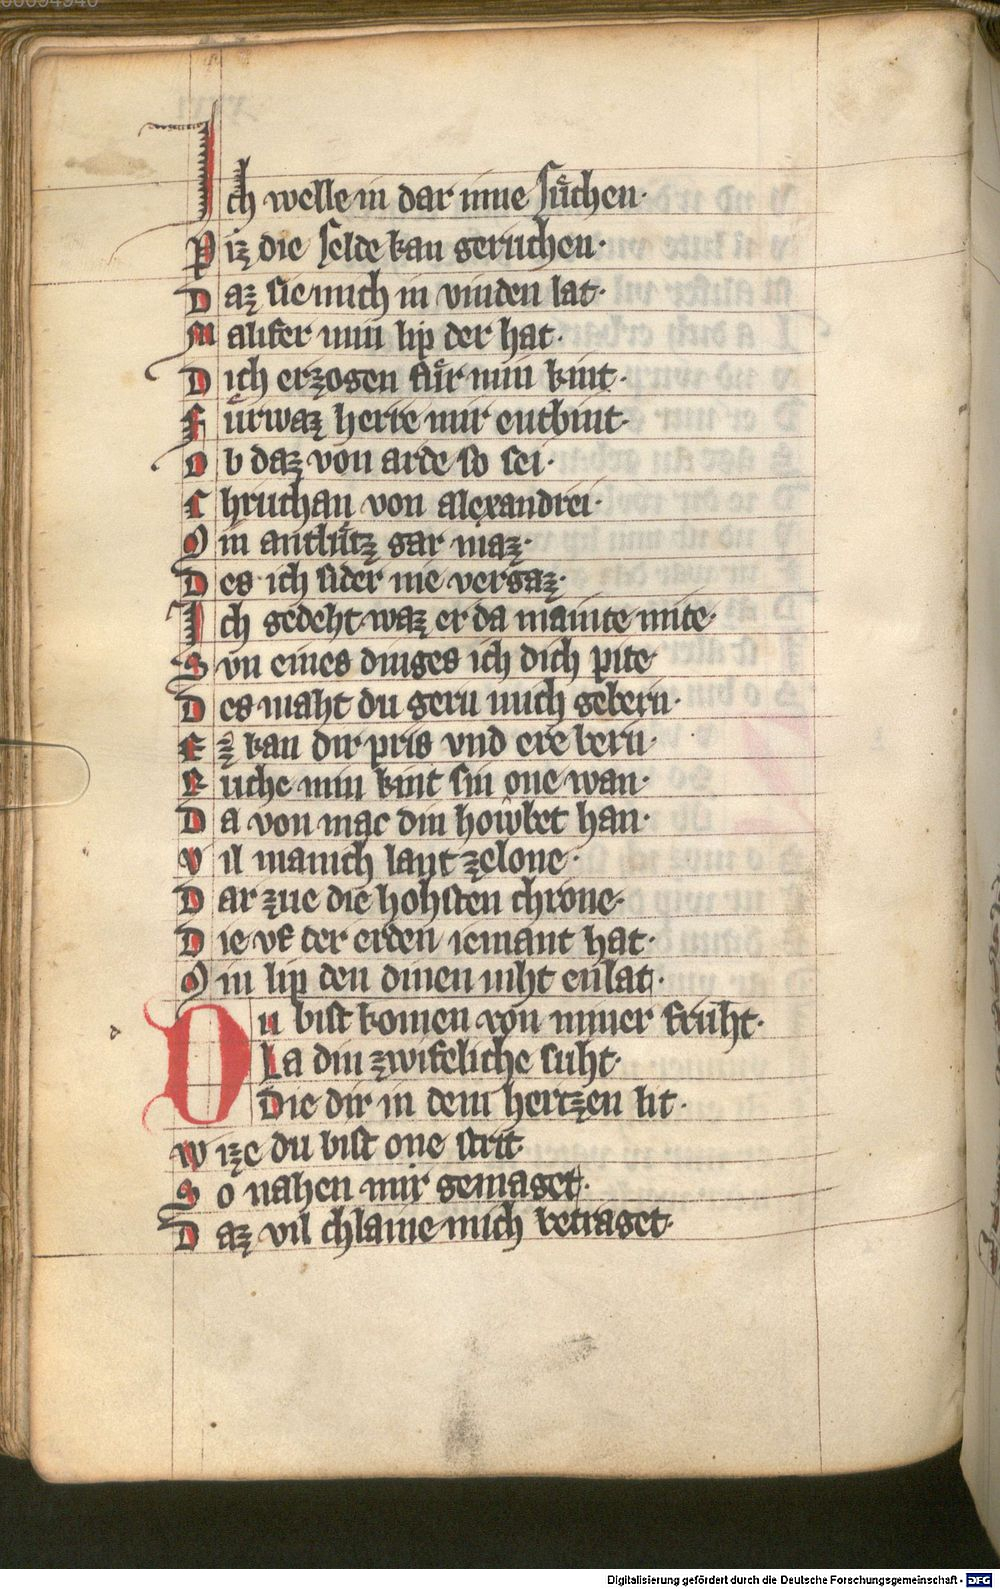 00094946
Ich welle in dar inne sůchen·
Piz die selde kan geruchen·
Daz sie mich in vinden lat·
Malifer min lip der hat·
Dich erzogen fůr min kint·
Fůrwaz herre mir enthint·
Ob daz von arde so sei·
Chruchan von Alexandrei·
Din antlůtz gar maz·
Des ich sider nie vergaz·
Ich gedeht waz er da mainte mite·
Svn eines dinges ich dich pite
Des maht du gern mich gebern·
Ez kan dir pris vnd ere bern·
Ruche min kint sin one wan·
Da von mac din howbet han·
Vil manich lant zelone·
Dar zue die hohsten chrone·
Die vf der erden iemant hat·
Din lip den dinen niht enlat·
Du bist komen von miner fruht·
La din zwifeliche suht·
Die dir in dem hertzen lit·
Wize du bist one strit·
So nahen mir gemaget·
Daz vil chlaine mich betraget·
Digitalisierung gefördert durch die Deutsche Forschungsgemeinschaft - DFG